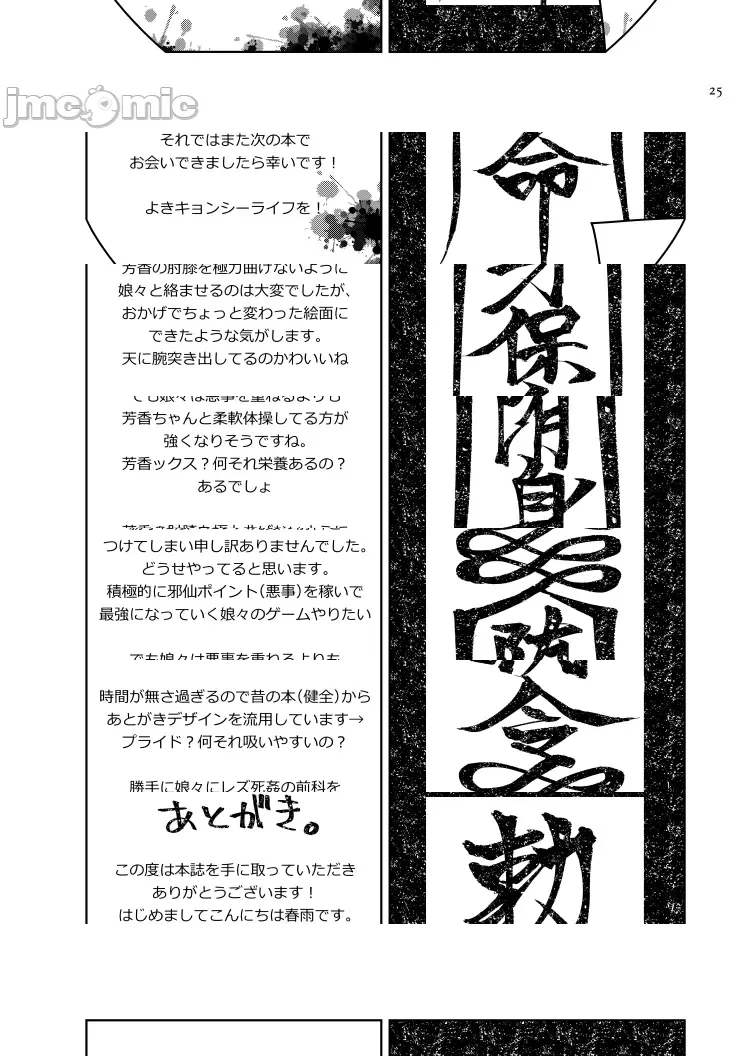 25
jmcomic
それではまた次の本で
お会いできましたら幸いです！
よきキョンシーライフを！
芳香の肘膝を極力曲げないように
娘々と絡ませるのは大変でしたが、
おかげでちょっと変わった絵面に
できたような気がします。
天に腕突き出してるのかわいいね
でも娘々は悪事を重ねるよりも
芳香ちゃんと柔軟体操してる方が
強くなりそうですね。
芳香ックス？何それ栄養あるの？
あるでしょ
つけてしまい申し訳ありませんでした。
どうせやってると思います。
積極的に邪仙ポイント（悪事）を稼いで
最強になっていく娘々のゲームやりたい
でも娘々は悪事を重ねるよりも
時間が無さ過ぎるので昔の本（健全）から
あとがきデザインを流用しています→
プライド？何それ吸いやすいの？
勝手に娘々にレズ死姦の前科を
あとがき。
この度は本誌を手に取っていただき
ありがとうございます！
はじめましてこんにちは春雨です。
命
保
身
令
勅